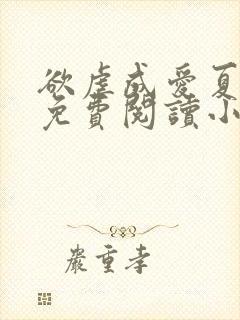 欲虐成愛夏
免費閱讀小
嚴重孝